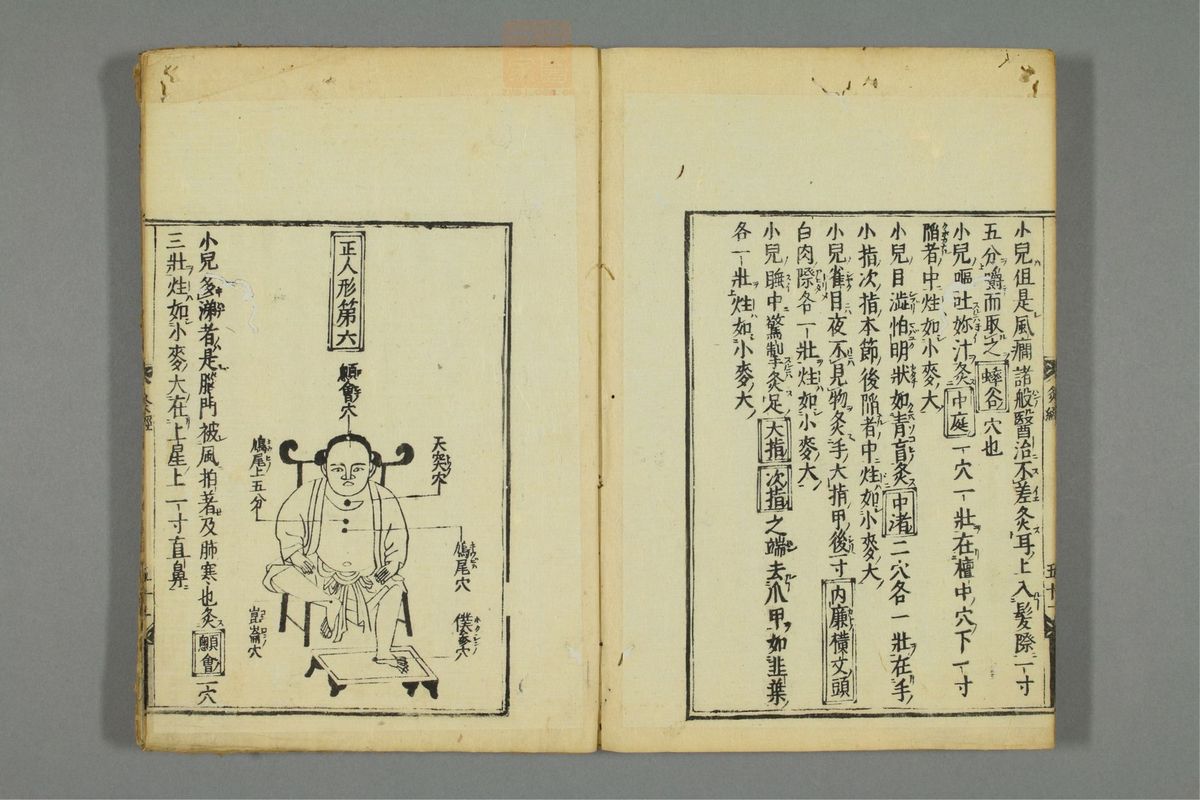 小兒但是風癇諸般醫治不差灸耳上入髮際一寸
五分嚼而取之蟀谷穴也
小兒嘔吐妳汁灸中庭一穴一壯在檀中穴下一寸
陷者中炷如小麥大
小兒目澁怕明狀如青盲灸中渚二穴各一壯在手
小指次指本節後陷者中炷如小麥大
小兒雀目夜不見物灸手大指甲後一寸内廉橫文頭
白肉際各一壯炷如小麥大
小兒睡中驚掣灸足大指次指之端去爪甲如韭葉
各一壯炷如小麥大
灸經
正人形第六
顖會穴
天突穴
鳩尾上五分
鳩尾穴
僕參穴
崑崙穴
小兒多涕者是腦門被風拍著及肺寒也灸顖會一穴
三壯炷如小麥大在上星上一寸直鼻
灸經